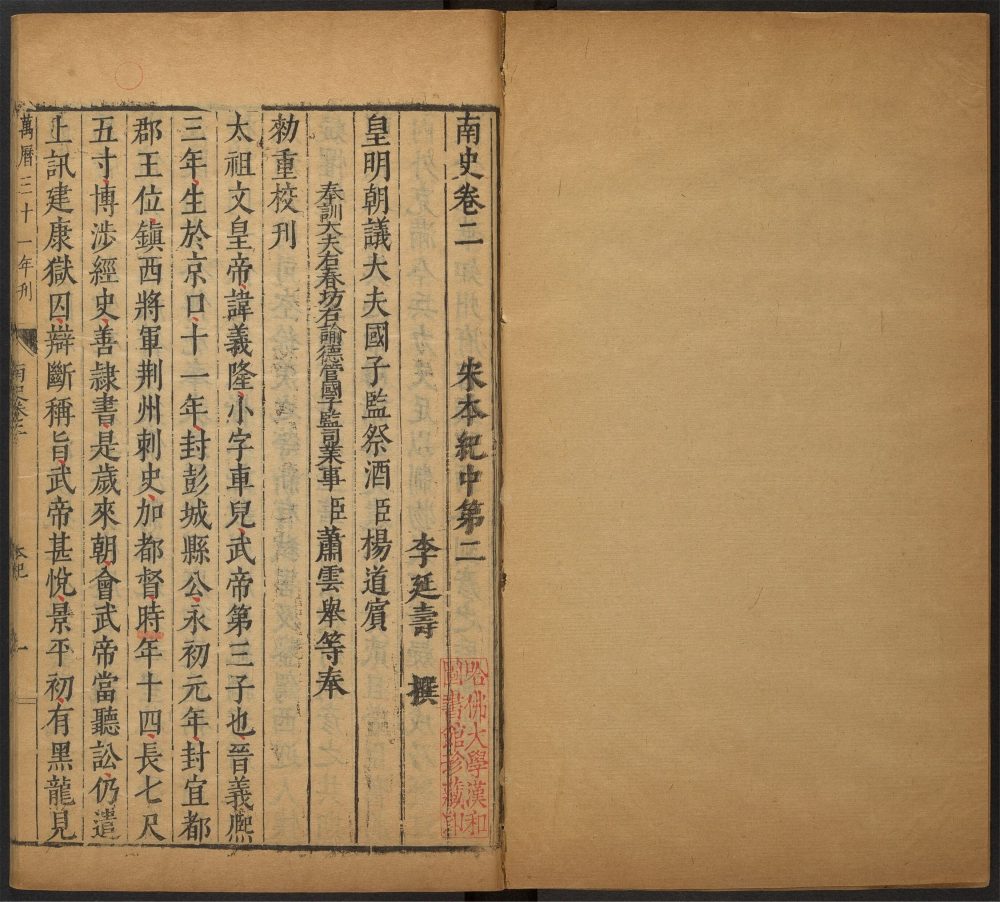 南史卷二 宋本紀中第二
李延壽 撰
皇明朝議大夫國子監祭酒臣楊道賓
奉訓大夫右春坊右諭德管國子監司業事臣蕭雲舉等奉
勑重校刊
太祖文皇帝諱義隆小字車兒武帝第三子也晉義熈
三年生於京口十一年封彭城縣公永初元年封宜都
郡王位鎮西將軍荆州刺史加都督時年十四長七尺
五寸博涉經史善隷書是歲來朝會武帝當聽訟仍遣
上訊建康獄囚辯斷稱旨武帝甚悅景平初有黑龍見
萬曆三十一年刊
南史卷二 本紀 一
哈佛大學漢和
圖書館珍藏印